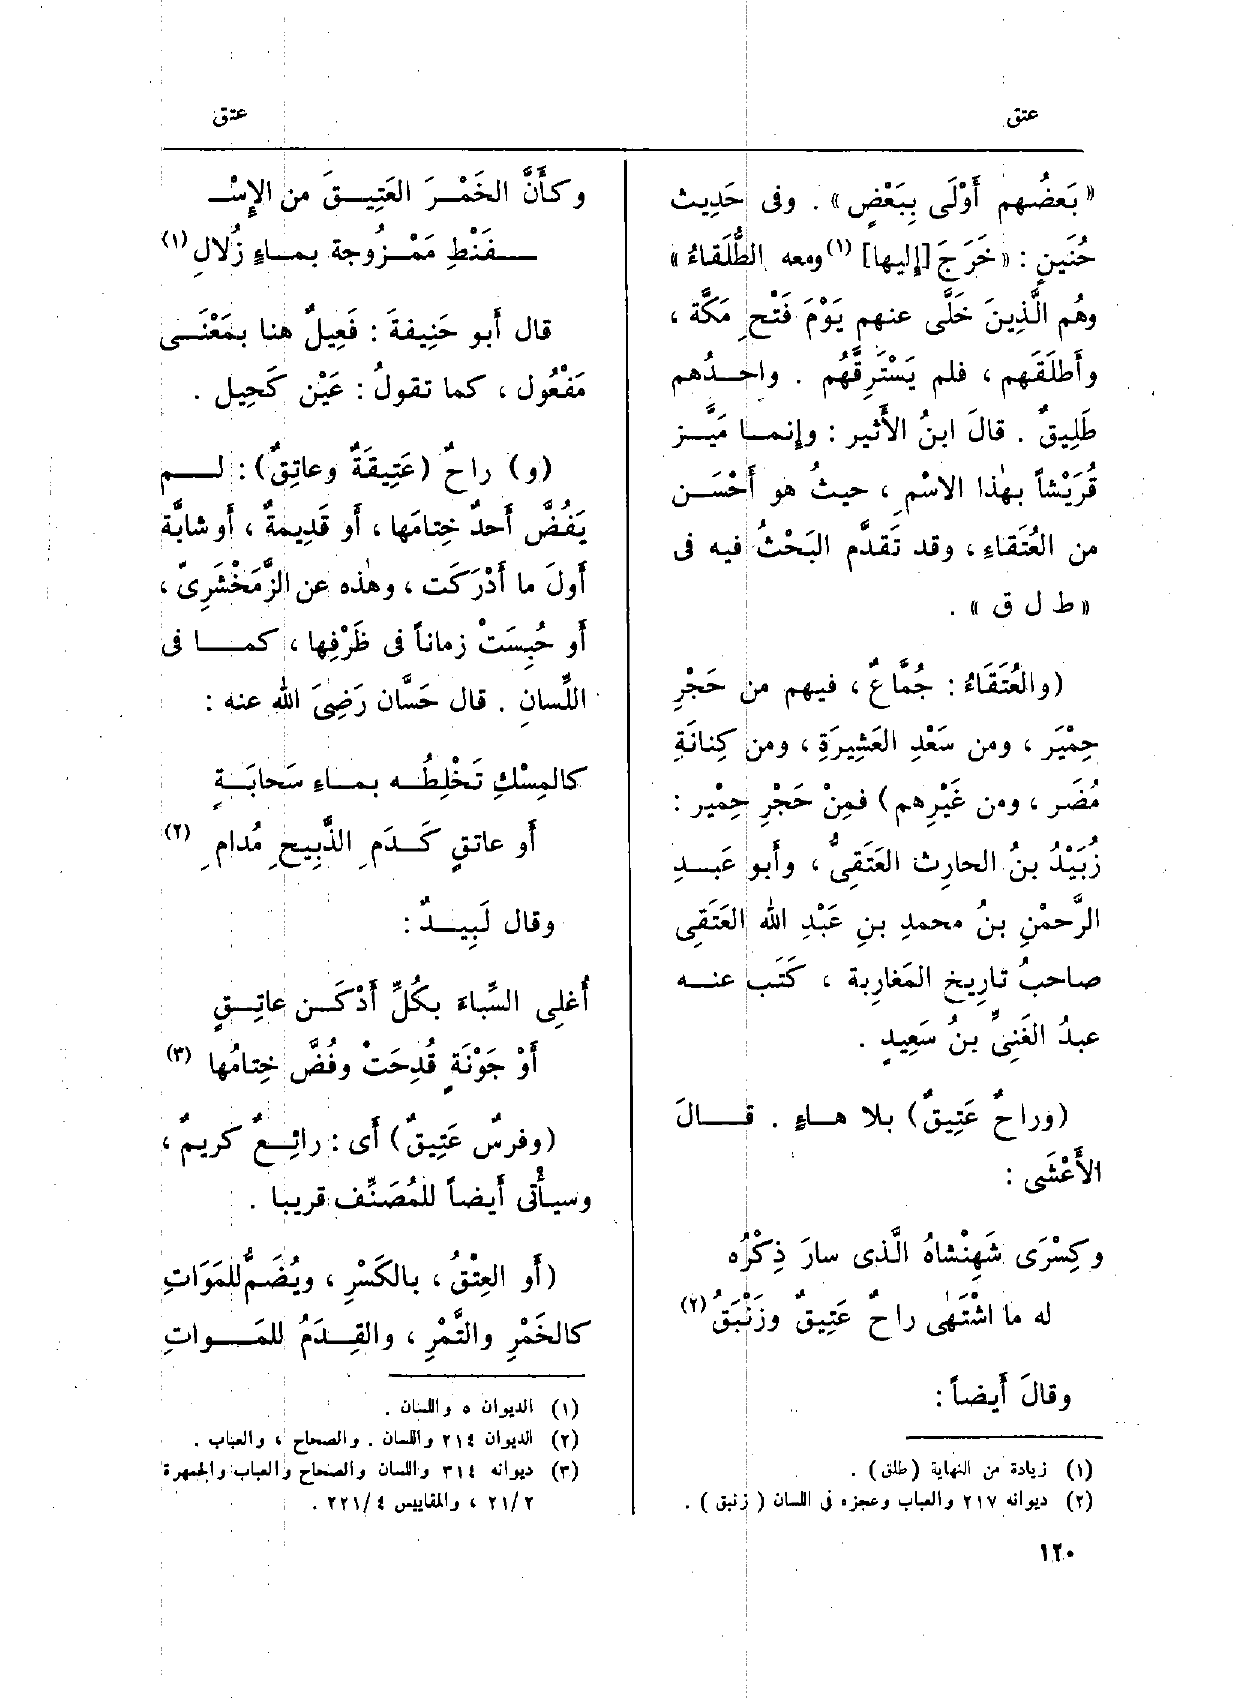 عتق
عتق
« بَعضُهم أَوْلَى بِبَعْضٍ » . وفى حَدِيث
حُنَينٍ : « خَرَجَ [إليها] (١) ومعه الطُّلَقاءُ »
وهُم الَّذِينَ خَلَّى عنهم يَوْمَ فَتْحِ مَكَّة ،
وأَطلَقَهم ، فلم يَسْتَرِقَّهُم . واحـدُهم
طَلِيقٌ . قالَ ابنُ الأَثير : وإنمـا مَيَّـز
قُرَيْشاً بهٰذا الاسْمِ ، حيثُ هو أَحْسَـن
من العُتَقاءِ ، وقد تَقدَّم البَحْثُ فيه فى
« ط ل ق » .
(والعُتَقَاءُ : جُمَّاعٌ ، فيهم من حَجْرِ
حِمْيَر ، ومن سَعْدِ العَشِيرَةِ ، ومن كِنانَةِ
مُضَر ، ومن غَيْرِهم ) فمِنْ حَجْرِ حِمْير :
زُبَيْدُ بنُ الحارِث العَتَقِىُّ ، وأَبو عَبـدِ
الرَّحمٰنِ بنُ محمدِ بنِ عَبْدِ الله العَتَقِى
صاحبُ تاريخ المَغارِبة ، كَتَب عنـه
عبدُ الغَنِىِّ بنُ سَعِيدٍ .
(وراحٌ عَتِيقٌ) بلا هـاءٍ . قـالَ
الأَعْشَى :
وكِسْرَى شَهِنْشاهُ الَّذى سارَ ذِكْرُه
له ما اشْتَهٰى راحٌ عَتِيقٌ وزَنْبَقُ (٢)
وقالَ أَيضاً :
(١) زيادة من النهاية (طلق) .
(٢) ديوانه ٢١٧ والعباب وعجزه فى اللسان ( زنبق ) .
١٢٠
وكأَنَّ الخَمْـرَ العَتِيـقَ من الإِسْـ
ـفَنْطِ مَمْـزُوجة بمـاءٍ زُلالِ (١)
قال أَبو حَنِيفةَ : فَعِيلٌ هنا بمَعْنَـى
مَفْعُول ، كما تقولُ : عَيْن كَحِيل .
(و) راحٌ (عَتِيقَةٌ وعاتِقٌ) : لـم
يَفُضَّ أَحدٌ خِتامَها ، أَو قَدِيمةٌ ، أَو شابَّة
أَولَ ما أَدْرَكَت ، وهٰذه عن الزَّمَخْشَرِىّ ،
أَو حُبِسَتْ زماناً فى ظَرْفِها ، كمـا فى
اللِّسانِ . قال حَسَّان رَضِىَ الله عنه :
كالمِسْكِ تَخْلِطُـه بمـاءِ سَحابَـةٍ
أَو عاتقٍ كَـدَمِ الذَّبِيحِ مُدامِ (٢)
وقال لَبِيـدٌ :
أُغلِى السِّباءَ بكُلِّ أَدْكَـن عاتِـقٍ
أَوْ جَوْنَةٍ قُدِحَتْ وفُضَّ خِتامُها (٣)
(وفرسٌ عَتِيقٌ) أَى : رائِـعٌ كريمٌ ،
وسيـأْتى أَيضاً للمُصَنِّف قريبا .
(أَو العِتْقُ ، بالكَسْرِ ، ويُضَمُّ للمَوَاتِ
كالخَمْرِ والتَّمْرِ ، والقِـدَمُ للمَـواتِ
(١) الديوان ٥ واللسان .
(٢) الديوان ٢١٤ واللسان . والصحاح ، والعباب .
(٣) ديوانه ٣١٤ واللسان والصحاح والعباب والجمهرة
٢١/٢ ، والمقاييس ٢٢١/٤ .